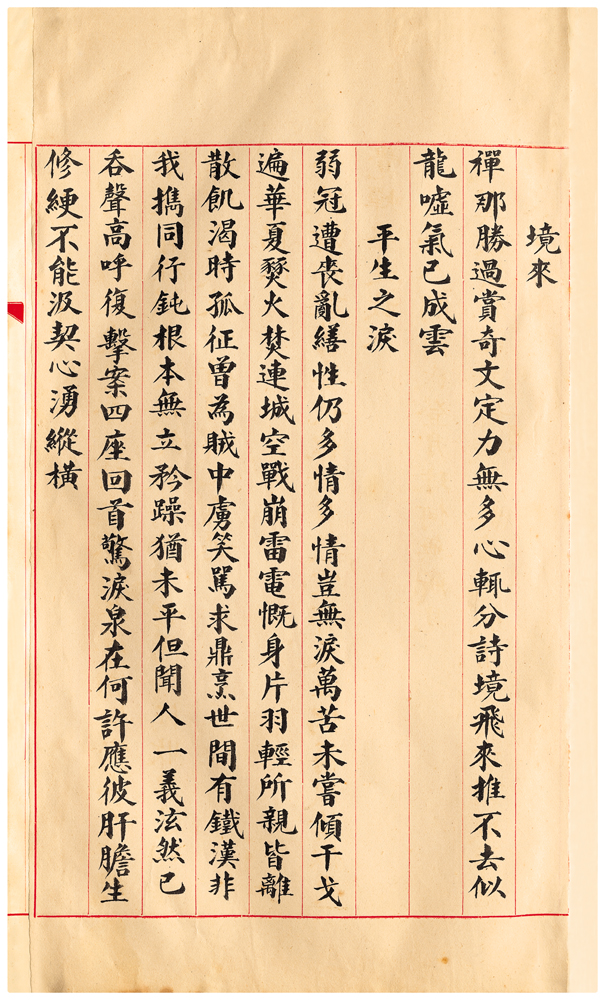 境來
禪那勝過賞奇文定力無多心輒分詩境飛來推不去似
龍噓氣已成雲
平生之淚
弱冠遭喪亂繕性仍多情多情豈無淚萬苦未嘗傾干戈
遍華夏燹火焚連城空戰崩雷電慨身片羽輕所親皆離
散飢渴時孤征曾為賊中虜笑罵求鼎烹世間有鐵漢非
我攜同行鈍根本無立矜躁猶未平但聞人一義泫然已
吞聲高呼復擊案四座回首驚淚泉在何許應彼肝膽生
修綆不能汲契心湧縱橫